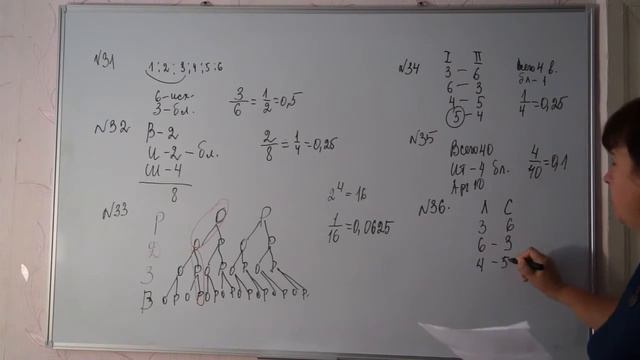 N31
1;2;3;4;5;6
6-исх.
3-бл.
3/6=1/2=0,5
N32
В-2
И-2-бл.
Ш-4
8
2/8=1/4=0,25
N33
Р
2
3
В
2^4=16
1/16=0,0625
N34
I II
3-6
6-3
4-5
5-4
Всего 4 в.
бл-1
1/4=0,25
N35
Всего 40
Ит-4 бл.
Арг 10
4/40=0,1
N36.
Л С
3 6
6-3
4-5